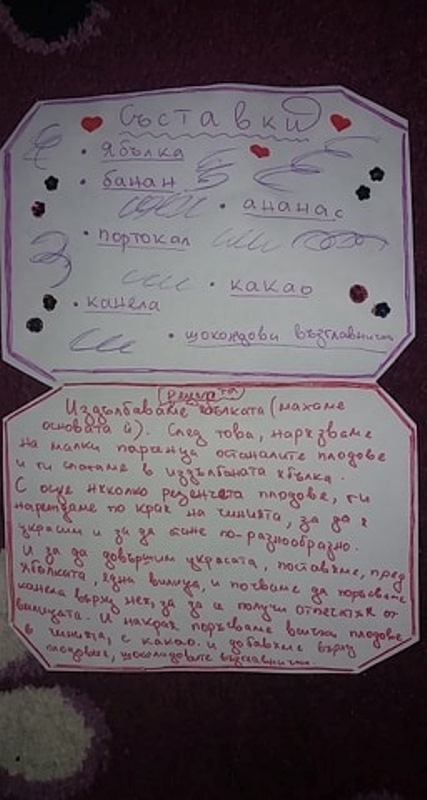 Съставки
• Ябълка
• банан
• ананас
• портокал
• какао
• канела
• шоколадови възглавнички
Рецепта
Издълбаваме ябълката (махаме
основата ѝ). След това, нарязваме
на малки парченца останалите плодове
и ги слагаме в издълбаната ябълка.
С още няколко резенчета плодове, ги
нареждаме по края на чинията, за да я
украсим и за да стане по-разнообразно.
И за да довършим украсата, поставяме, пред
ябълката, една вилица, и почваме да поръсваме
канела върху нея, за да се получи отпечатък от
вилицата. И накрая поръсваме всички плодове
в чинията, с какао и добавяме върху
плодовете, шоколадовите възглавнички.